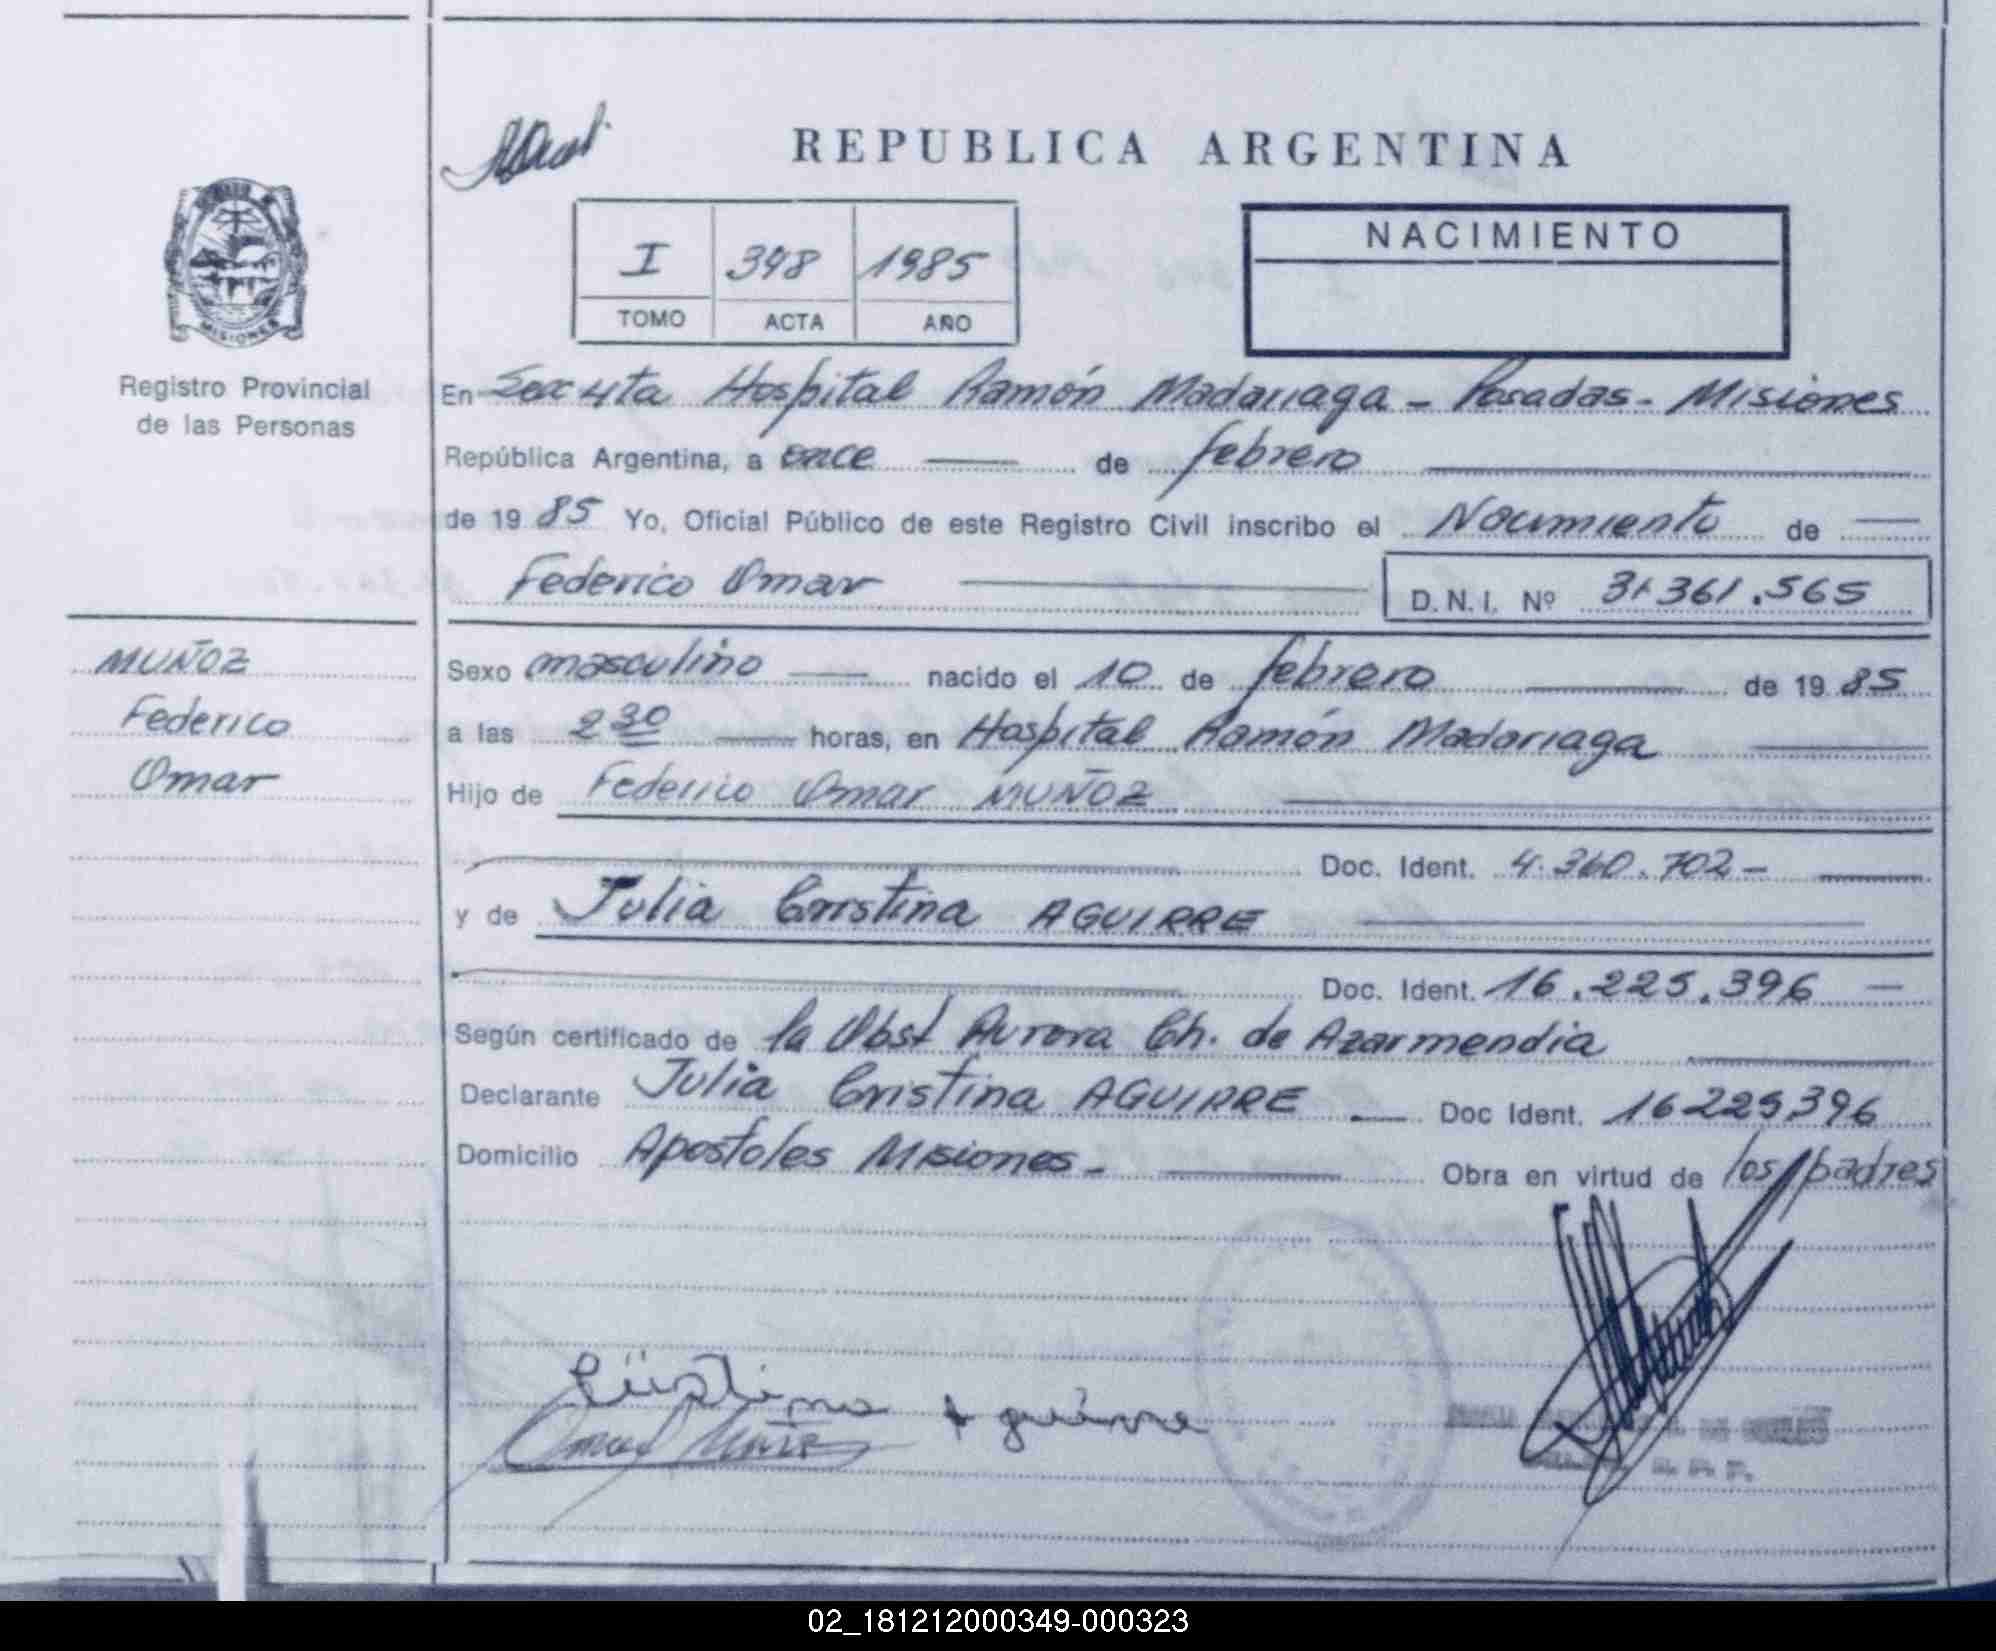 REPUBLICA ARGENTINA
I 348 1985
TOMO ACTA AÑO
NACIMIENTO
MISIONES
Registro Provincial
de las Personas
En Secc 4ta Hospital Ramón Madariaga - Posadas - Misiones
República Argentina, a once de febrero
de 19 85 Yo, Oficial Público de este Registro Civil inscribo el Nacimiento de
Federico Omar D.N.I. Nº 31.361.565
MUÑOZ
Federico
Omar
Sexo masculino nacido el 10 de febrero de 19 85
a las 2 30 horas, en Hospital Ramón Madariaga
Hijo de Federico Omar MUÑOZ
Doc. Ident. 4.360.702-
y de Julia Cristina AGUIRRE
Doc. Ident. 16.225.396
Según certificado de la Obst Aurora Ch. de Azarmendia
Declarante Julia Cristina AGUIRRE Doc Ident. 16225396
Domicilio Apostoles Misiones- Obra en virtud de los padres
Cristina Aguirre
Omar Muñoz
02_181212000349-000323